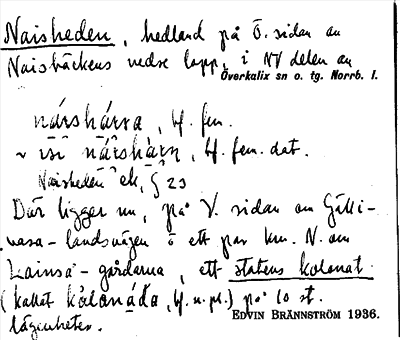 Naisheden, hedland på Ö. sidan av
Naisbäckens nedre lopp, i NV delen av
Överkalix sn o. tg. Norrb. l.
nárshárra, 4. fem.
~ isi nárshárn, 4. fem. dat.
Naisheden ek. § 23
Där ligger nu, på V. sidan om Gälli-
vara-landsvägen ö ett par km. N. om
Lainså-gårdarna, ett statens kolonat
(kallat kòlonáda, 4. n. pl.) på 10 st.
lägenheter.
EDVIN BRÄNNSTRÖM 1936.